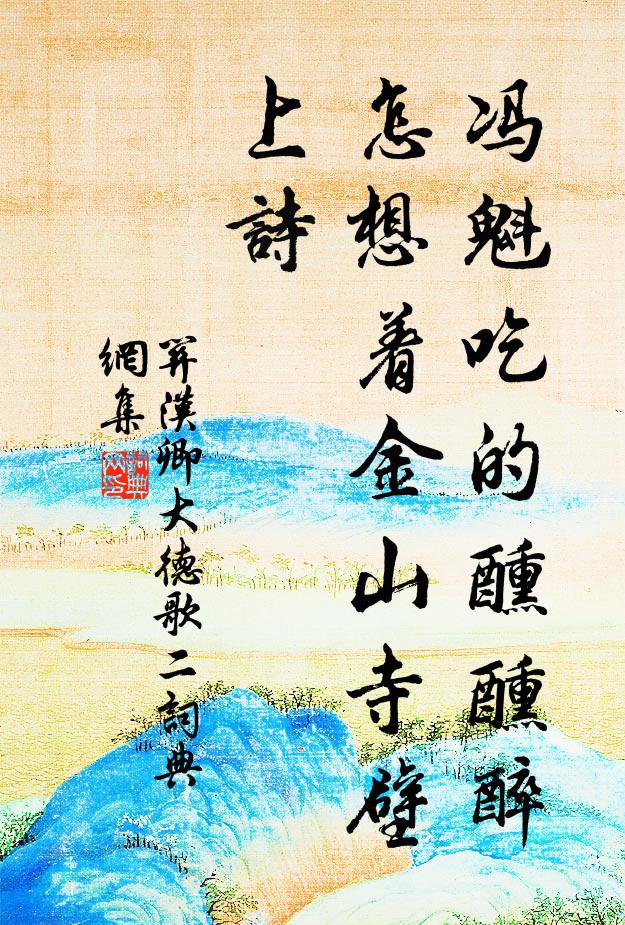 冯魁吃的醺醺醉
怎想着金山寺壁
上詩
関漢卿大德歌二詞典
網集
詞典